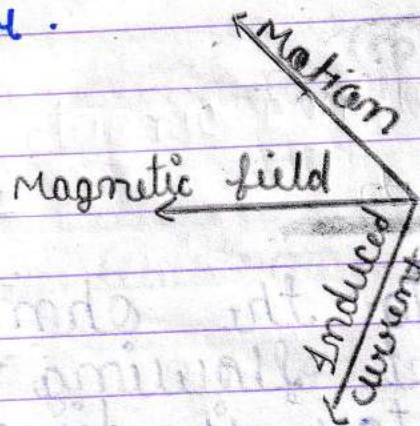 4.
Motion
Magnetic field
Induced
current